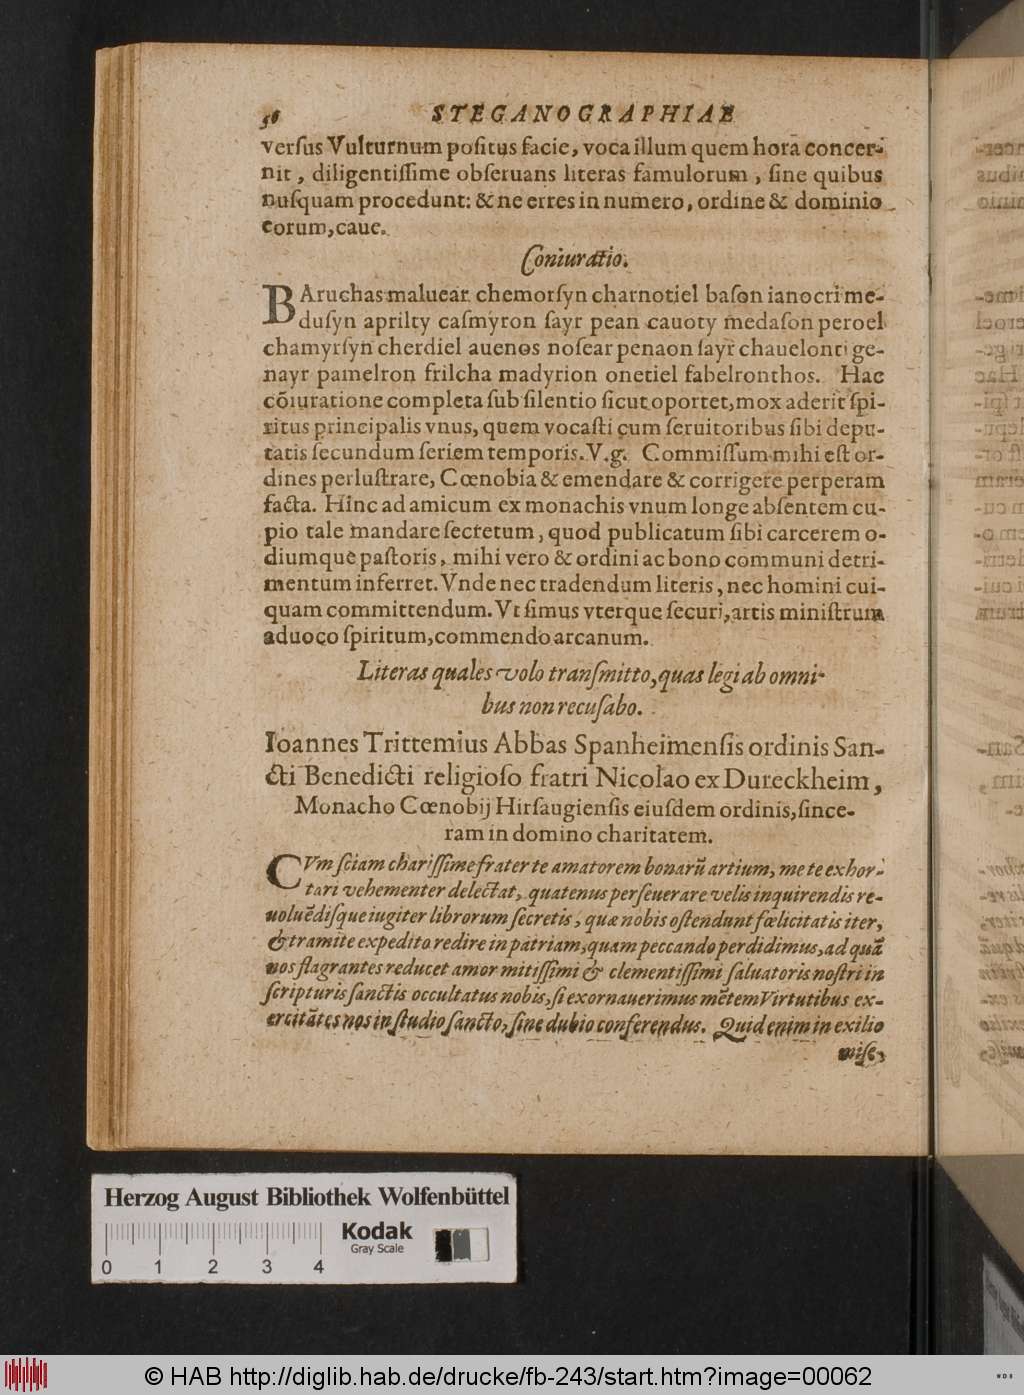 56 STEGANOGRAPHIAE
verſus Vulturnum poſitus facie, voca illum quem hora concer-
nit, diligentiſſime obſeruans literas famulorum, ſine quibus
nuſquam procedunt: & ne erres in numero, ordine & dominio
eorum, caue.
Coniuratio.
BAruchas maluear chemorſyn charnotiel baſon ianocri me-
duſyn aprilty caſmyron ſayr pean cauoty medaſon peroel
chamyrſyn cherdiel auenos noſear penaon ſayr chauelonti ge-
nayr pamelron frilcha madyrion onetiel fabelronthos. Hac
cõiuratione completa ſub ſilentio ſicut oportet, mox aderit ſpi-
ritus principalis vnus, quem vocaſti cum ſeruitoribus ſibi depu-
tatis ſecundum ſeriem temporis. V.g. Commiſſum mihi eſt or-
dines perluſtrare, Cœnobia & emendare & corrigere perperam
facta. Hinc ad amicum ex monachis vnum longe abſentem cu-
pio tale mandare ſecretum, quod publicatum ſibi carcerem o-
diumque paſtoris, mihi vero & ordini ac bono communi detri-
mentum inferret. Vnde nec tradendum literis, nec homini cui-
quam committendum. Vt ſimus vterque ſecuri, artis miniſtrum
aduoco ſpiritum, commendo arcanum.
Literas quales volo tranſmitto, quas legi ab omni-
bus non recuſabo.
Ioannes Trittemius Abbas Spanheimenſis ordinis San-
cti Benedicti religioſo fratri Nicolao ex Dureckheim,
Monacho Cœnobij Hirſaugienſis eiuſdem ordinis, ſince-
ram in domino charitatem.
CVm ſciam chariſſime frater te amatorem bonarũ artium, me te exhor-
tari vehementer delectat, quatenus perſeuerare velis inquirendis re-
uoluẽdiſque iugiter librorum ſecretis, quæ nobis oſtendunt fœlicitatis iter,
& tramite expedito redire in patriam, quam peccando perdidimus, ad quã
nos flagrantes reducet amor mitiſſimi & clementiſſimi ſaluatoris noſtri in
ſcripturis ſanctis occultatus nobis, ſi exornauerimus mẽtem Virtutibus ex-
ercitãtes nos in ſtudio ſancto, ſine dubio conferendus. Quid enim in exilio
miſe-
Herzog August Bibliothek Wolfenbüttel
Kodak
Gray Scale
0 1 2 3 4
© HAB http://diglib.hab.de/drucke/fb-243/start.htm?image=00062